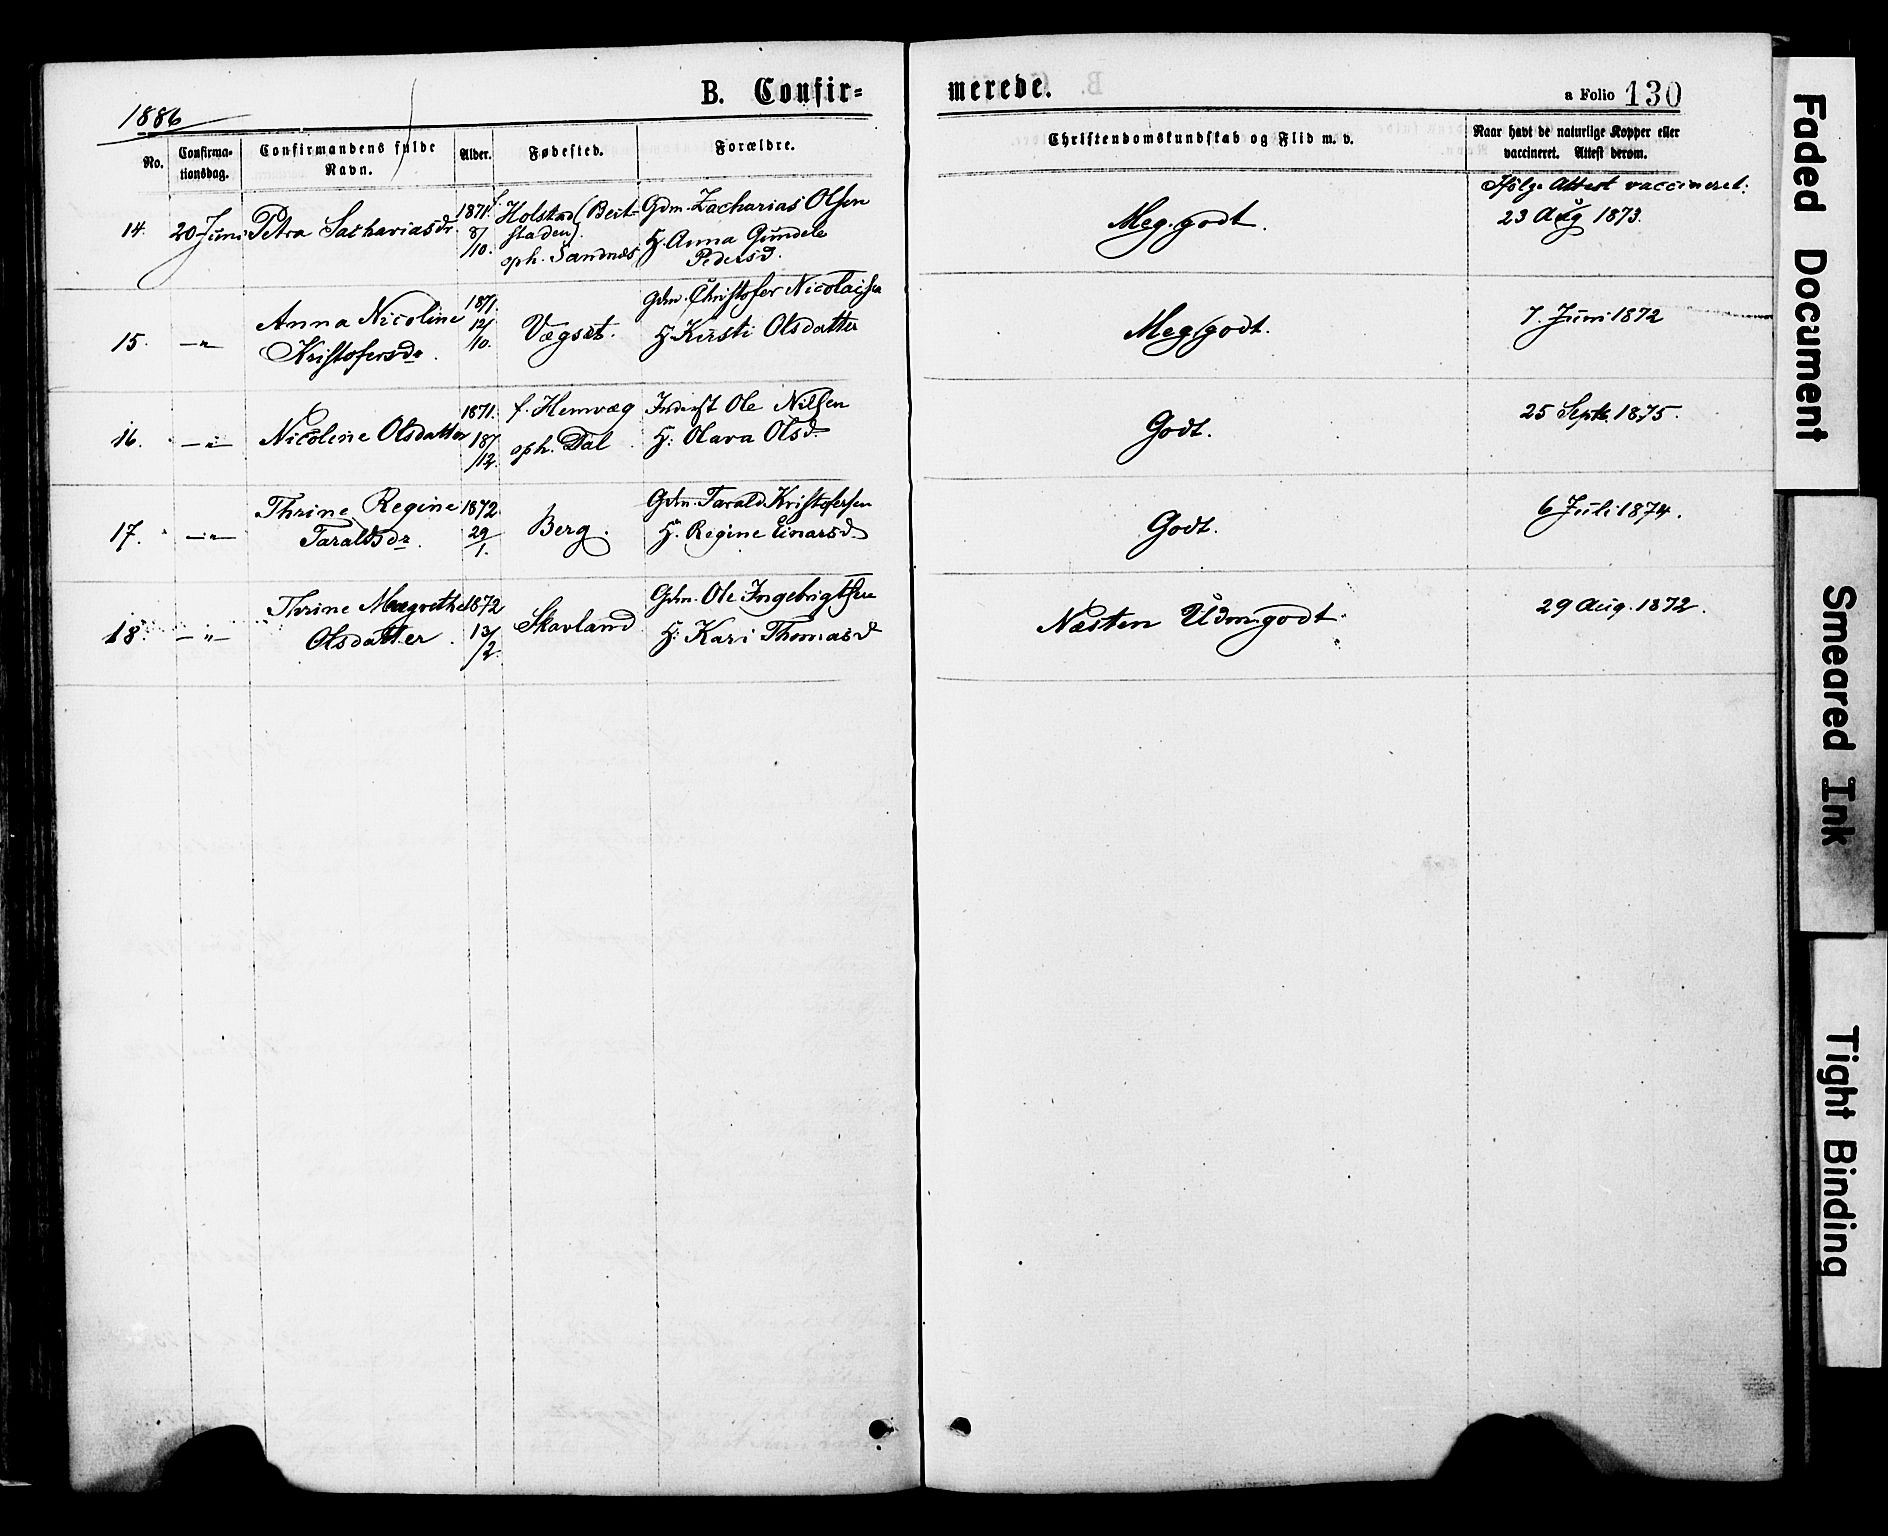 1886
B. Confir=
merede.
a Folio 130
No.
Confirma-
tionsdag.
Confirmandens fulde
Navn.
Alder.
Fødested.
Forældre.
Christendomskundskab og Flid m. v.
Naar havt de naturlige Kopper eller
vaccineret. Attest derom.
14. 20 Juni Petra Sachariasdr.
1871.
8/10.
f. Holstad (Beit-
staden).
oph. Sandnes
Gdm. Zacharias Olsen
H. Anna Gundele
Pedersd.
Meg. godt.
Ifølge Attest vaccineret:
23 Aug 1873.
15. —"—
Anna Nicoline
Kristofersdr.
1871.
12/10.
Vægset.
Gdm. Christofer Nicolaisen
H. Kirsti Olsdatter
Meg. godt.
7. Juni 1872
16. —"— Nicoline Olsdatter
1871.
18/12.
f. Hemvæg
oph. Dal
Inderst Ole Nilsen
H: Olava Olsd.
Godt.
25 Septb. 1875.
17. —"—
Thrine Regine
Taraldsdr.
1872
29/1.
Berg.
Gdm. Tarald Kristofersen
H. Regine Einarsd.
Godt.
6 Juli 1874.
18. —"—
Thrine Margrethe
Olsdatter.
1872
13/2.
Skavland
Gdm. Ole Ingebrigtsen
H: Kari Thomasd
Næsten Udm. godt.
29 Aug. 1872.
Faded Document
Smeared Ink
Tight Binding